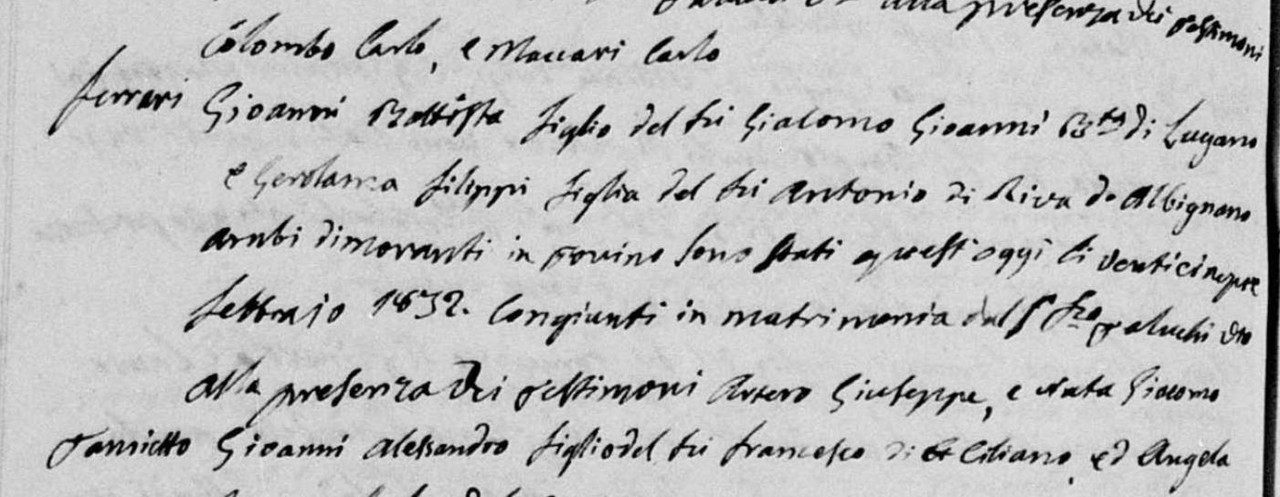 alla presenza dei testimoni
Colombo Carlo, e Maccari Carlo
Ferrari Gioanni Battista figlio del fu Giacomo Gioanni Bta di Lugano
e Gerolama Filippi figlia del fu Antonio di Riva de Albignano
ambi dimoranti in Torino sono stati quest'oggi li venticinque
febbraio 1832. Congiunti in matrimonio dal
alla presenza dei testimoni Artero Giuseppe, e Nata Giacomo
Gioanni Alessandro figlio del fu Francesco di Ciliano, ed Angela